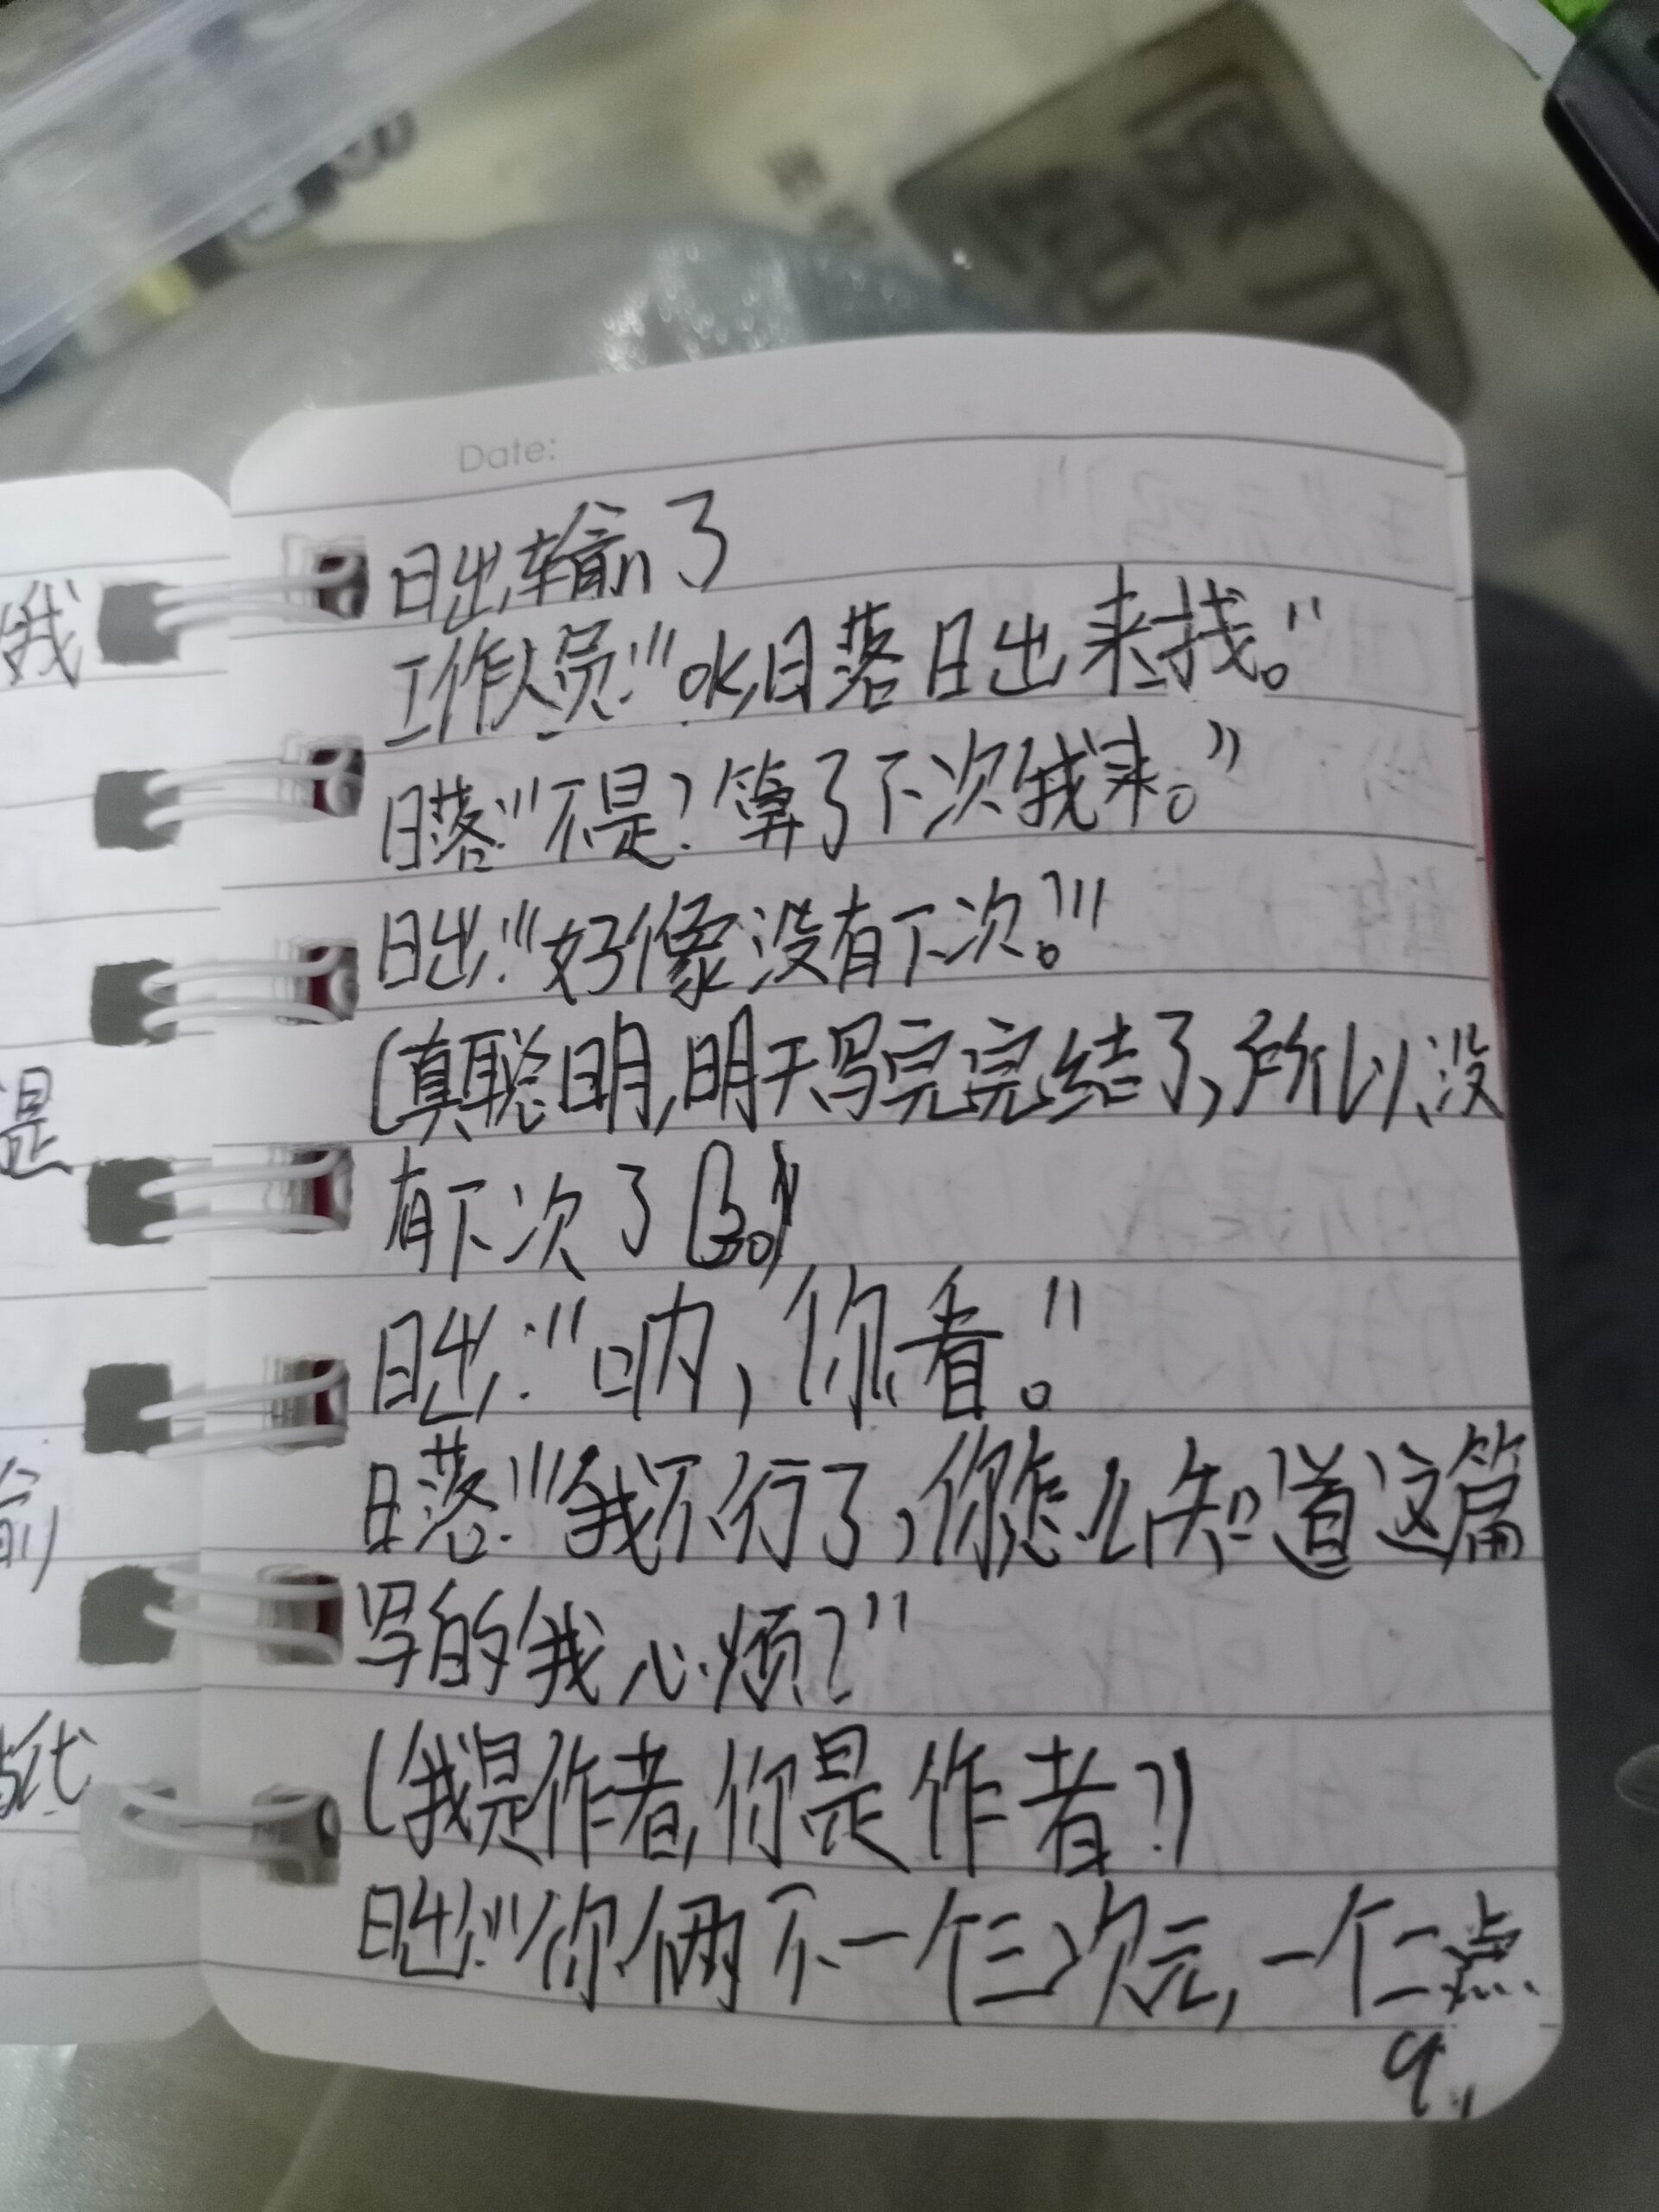 Date:
日出输了
工作人员:"ok,日落日出来找。"
日落:"不是?算了下次我来。"
日出:"好像没有下次。"
(真聪明,明天写完完结了,所以没
有下次了
日出:"呐,你看。"
日落:"我不行了,你怎么知道这篇
写的我心烦?"
(我是作者,你是作者?)
日出:"你俩不一个三次元,一个二点
俄
是